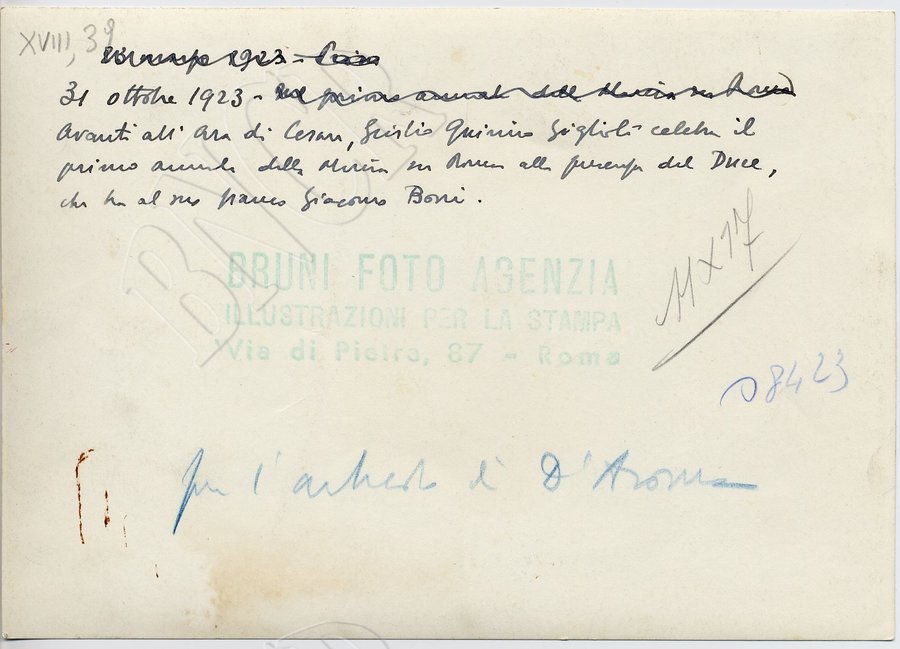 XVIII, 39
1923 -
31 ottobre 1923 - Nel primo annuale della Marcia su Roma
Avanti all' Ara di Cesare, Giulio Quirino Giglioli celebra il
primo annuale della Marcia su Roma alla presenza del Duce,
che ha al suo fianco Giacomo Boni.
11 x 17
BRUNI FOTO AGENZIA
ILLUSTRAZIONI PER LA STAMPA
Via di Pietra, 87 - Roma
8423
per l'articolo di D'Aroma
BNCR